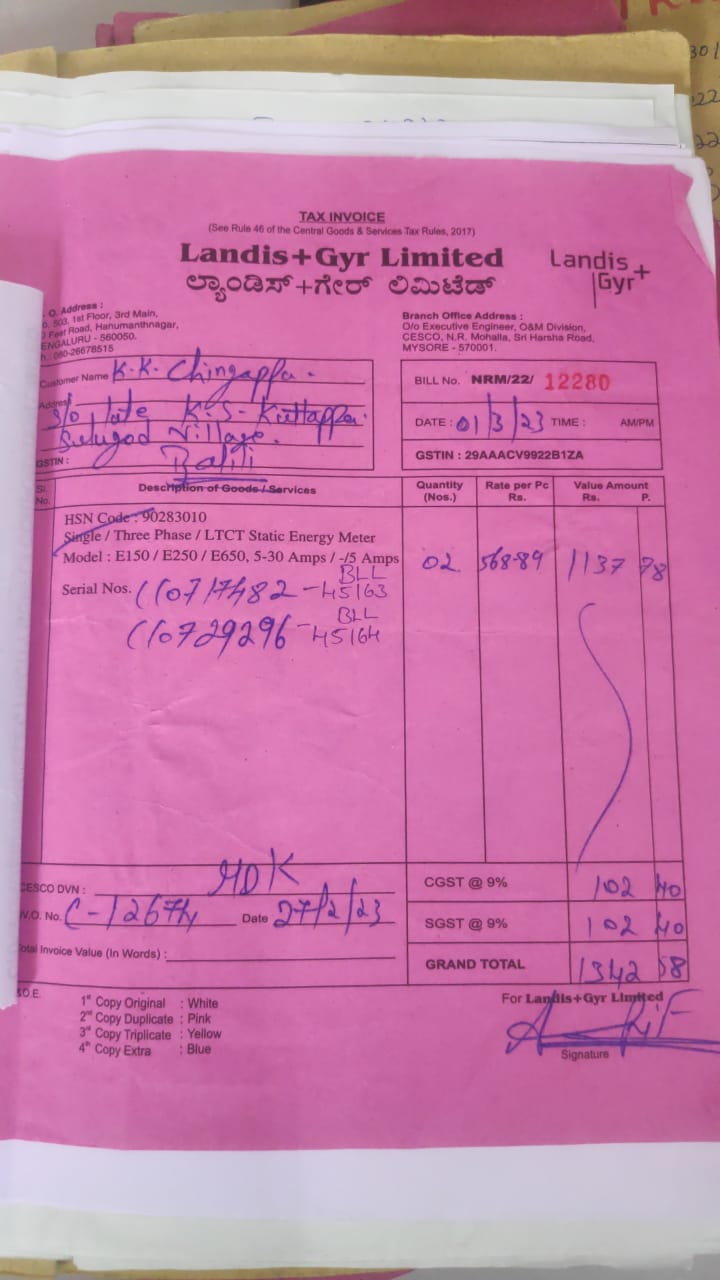 TAX INVOICE
(See Rule 46 of the Central Goods & Services Tax Rules, 2017)
Landis+Gyr Limited
ಲ್ಯಾಂಡಿಸ್+ಗೇರ್ ಲಿಮಿಟೆಡ್
Landis+
Gyr
. O. Address :
503, 1st Floor, 3rd Main,
Feet Road, Hanumanthnagar,
ENGALURU - 560050.
h.: 080-26678515
Branch Office Address :
O/o Executive Engineer, O&M Division,
CESCO, N.R. Mohalla, Sri Harsha Road,
MYSORE - 570001.
Customer Name K.K. Chingappa.
Address S/o late K.S. Kuttappa.
Village.
GSTIN :
BILL No. NRM/22/ 12280
DATE : 01/3/23 TIME : AM/PM
GSTIN : 29AAACV9922B1ZA
Sl. No. Description of Goods / Services Quantity (Nos.) Rate per Pc Rs. Value Amount Rs. P.
HSN Code : 90283010
Single / Three Phase / LTCT Static Energy Meter
Model : E150 / E250 / E650, 5-30 Amps / -/5 Amps 02 568-89 1137 78
BLL
Serial Nos. 110717482 - 45163
BLL
110729296 - 45164
CESCO DVN : MDK
W.O. No. C-12674 Date 27/2/23
Total Invoice Value (In Words) :
CGST @ 9% 102 40
SGST @ 9% 102 40
GRAND TOTAL 1342 58
S.O.E.
1st Copy Original : White
2nd Copy Duplicate : Pink
3rd Copy Triplicate : Yellow
4th Copy Extra : Blue
For Landis+Gyr Limited
Signature